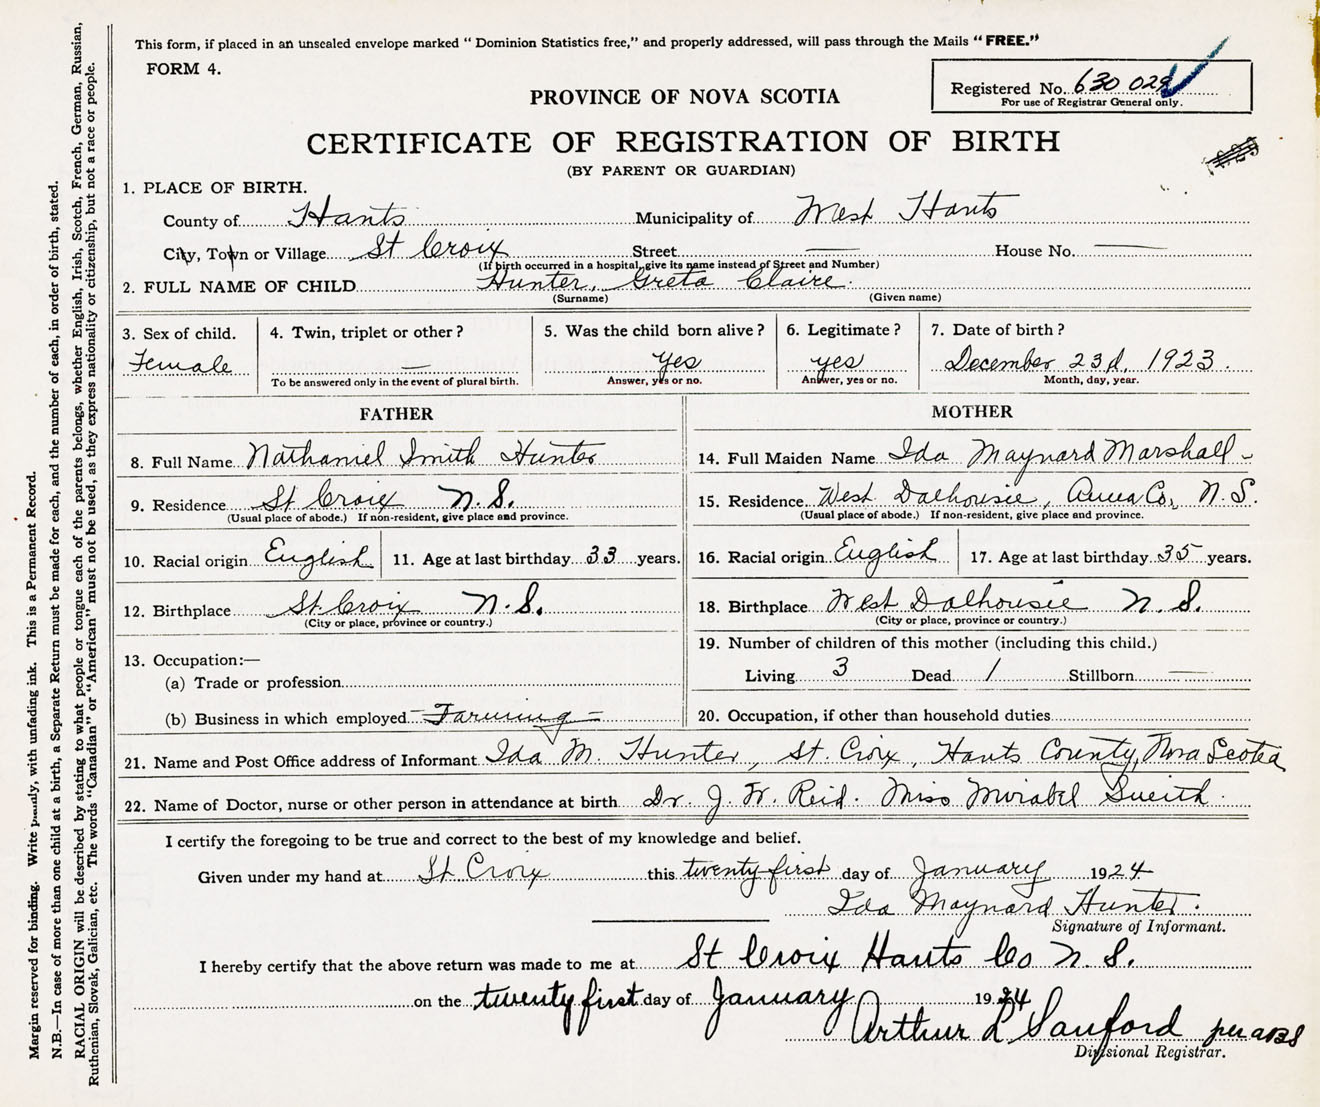 This form, if placed in an unsealed envelope marked "Dominion Statistics free," and properly addressed, will pass through the Mails "FREE."
FORM 4.
Registered No. 630 029
For use of Registrar General only.
PROVINCE OF NOVA SCOTIA
CERTIFICATE OF REGISTRATION OF BIRTH
(BY PARENT OR GUARDIAN)
1. PLACE OF BIRTH.
County of Hants Municipality of West Hants
City, Town or Village St Croix Street — House No. —
(If birth occurred in a hospital, give its name instead of Street and Number)
2. FULL NAME OF CHILD Hunter, Greta Claire.
(Surname) (Given name)
3. Sex of child. 4. Twin, triplet or other? 5. Was the child born alive? 6. Legitimate? 7. Date of birth?
Female — Yes yes December 23d, 1923.
To be answered only in the event of plural birth. Answer, yes or no. Answer, yes or no. Month, day, year.
FATHER MOTHER
8. Full Name Nathaniel Smith Hunter 14. Full Maiden Name Ida Maynard Marshall
9. Residence St Croix N.S. 15. Residence West Dalhousie, Anna Co., N.S.
(Usual place of abode.) If non-resident, give place and province. (Usual place of abode.) If non-resident, give place and province.
10. Racial origin English 11. Age at last birthday 33 years. 16. Racial origin English 17. Age at last birthday 35 years.
12. Birthplace St Croix N.S. 18. Birthplace West Dalhousie N.S.
(City or place, province or country.) (City or place, province or country.)
19. Number of children of this mother (including this child.)
13. Occupation:—
(a) Trade or profession Living 3 Dead 1 Stillborn —
(b) Business in which employed Farming 20. Occupation, if other than household duties
21. Name and Post Office address of Informant Ida M. Hunter, St. Croix, Hants County, Nova Scotia
22. Name of Doctor, nurse or other person in attendance at birth Dr. J. W. Reid. Miss Smith.
I certify the foregoing to be true and correct to the best of my knowledge and belief.
Given under my hand at St. Croix this twenty-first day of January 1924
Ida Maynard Hunter.
Signature of Informant.
I hereby certify that the above return was made to me at St Croix Hants Co N.S.
on the twenty first day of January 1924
Arthur L Sanford per
Divisional Registrar.
Margin reserved for binding. Write with unfading ink. This is a Permanent Record.
N.B.—In case of more than one child at a birth, a Separate Return must be made for each, and the number of each, in order of birth, stated.
RACIAL ORIGIN will be described by stating to what people or tongue each of the parents belongs, whether English, Irish, Scotch, French, German, Russian,
Ruthenian, Slovak, Galician, etc. The words "Canadian" or "American" must not be used, as they express nationality or citizenship, but not a race or people.